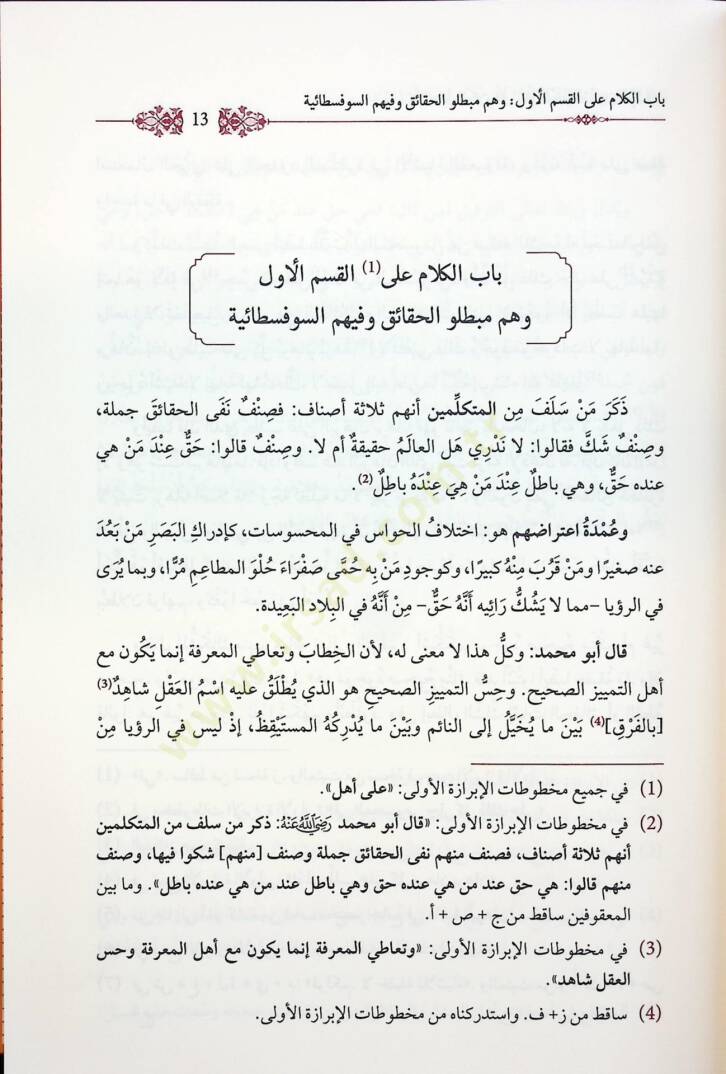 باب الكلام على القسم الأول: وهم مبطلو الحقائق وفيهم السوفسطائية
13
باب الكلام على(1) القسم الأول
وهم مبطلو الحقائق وفيهم السوفسطائية
ذَكَرَ مَنْ سَلَفَ مِن المتكلِّمين أنهم ثلاثة أصناف: فصِنْفٌ نَفَى الحقائقَ جملة،
وصِنْفٌ شَكَّ فقالوا: لا نَدْرِي هَل العالَمُ حقيقةٌ أم لا. وصِنْفٌ قالوا: حَقٌّ عِنْدَ مَنْ هي
عنده حَقٌّ، وهي باطلٌ عِنْدَ مَنْ هِيَ عِنْدَهُ باطِلٌ(2).
وعُمْدَةُ اعتراضهم هو: اختلافُ الحواس في المحسوسات، كإدراكِ البَصَرِ مَنْ بَعُدَ
عنه صغيرًا ومَنْ قَرُبَ مِنْهُ كبيرًا، وكوجودِ مَنْ بِه حُمَّى صَفْرَاءَ حُلْوَ المطاعِمِ مُرًّا، وبما يُرَى
في الرؤيا -مما لا يَشُكُّ رَائِيه أَنَّهُ حَقٌّ- مِنْ أنَّهُ في البِلاد البَعِيدة.
قال أبو محمد: وكلُّ هذا لا معنى له، لأن الخِطابَ وتعاطي المعرفة إنما يَكُون مع
أهل التمييز الصحيح. وحِسُّ التمييزِ الصحيحِ هو الذي يُطْلَقُ عليه اسْمُ العَقْلِ شاهدٌ(3)
[بالفَرْقِ](4) بَيْنَ ما يُخَيَّلُ إلى النائم وبَيْنَ ما يُدْرِكِهُ المستَيْقِظُ، إذْ ليس في الرؤيا مِنْ
(1) في جميع مخطوطات الإبرازة الأولى: «على أهل».
(2) في مخطوطات الإبرازة الأولى: «قال أبو محمد رَضِيَ اللَّهُ عَنْهُ: ذكر من سلف من المتكلمين
أنهم ثلاثة أصناف، فصنف منهم نفى الحقائق جملة وصنف [منهم] شكوا فيها، وصنف
منهم قالوا: هي حق عند من هي عنده حق وهي باطل عند من هي عنده باطل». وما بين
المعقوفين ساقط من ج + ص + أ.
(3) في مخطوطات الإبرازة الأولى: «وتعاطي المعرفة إنما يكون مع أهل المعرفة وحس
العقل شاهد».
(4) ساقط من ز+ ف. واستدركناه من مخطوطات الإبرازة الأولى.